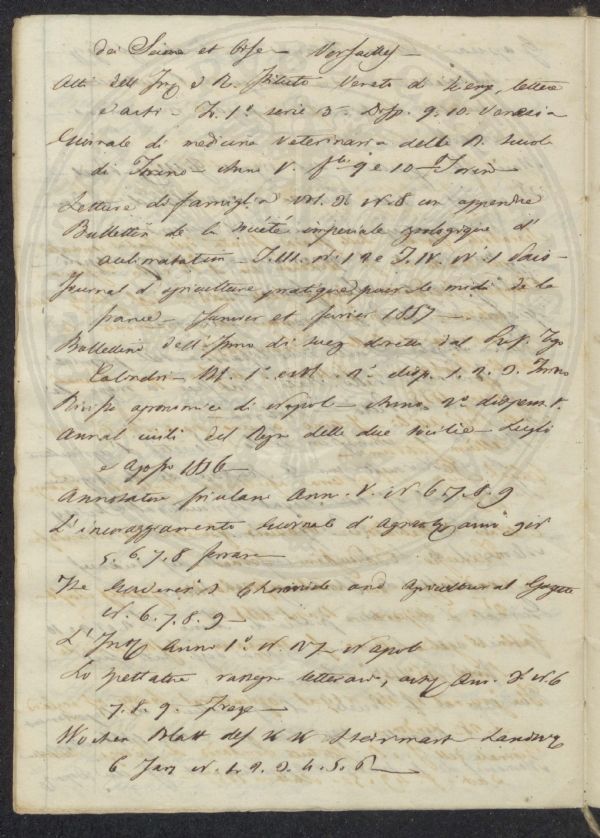 de Seine et Oise — Versailles —
Atti dell' I. e R. Istituto Veneto di Scienze, lettere
ed arti — T. 1° serie 3ª Disp. 9. 10. Venezia
Giornale di medicina Veterinaria della R. Scuola
di Torino — Anno V. f.li 9 e 10 — Torino
Letture di famiglia Vol. N. 8 con appendice
Bulletin de la Société imperiale zoologique d'
acclimatation — T. III. N. 1 2 e T. IV. N. 1 Paris —
Journal d'agriculture pratique pour le midi de la
france — Janvier et fevrier 1857 —
Bullettino dell' Istmo di Suez diretto dal Prof. Ugo
Calindri — Vol. 1° e Vol. 2° disp. 1. 2. 3. Torino
Rivista agronomica di Napoli — Anno 2° dispensa 1.
Annali civili del Regno delle due Sicilie — Luglio
e Agosto 1856 —
Annotatore friulano Ann. V. N. 6. 7. 8. 9
L'incoraggiamento Giornale d'Agricolt.
5. 6. 7. 8 Ferrara —
The Gardener's Chronicle and Agricultural Gazette
N. 6. 7. 8. 9 —
Anno 1° N. Napoli
Lo Spettatore rassegna letteraria, N. 6
7. 8. 9. — Firenze —
Wochen Blatt der K K Steiermark Landw.
6 Jarg N. 1. 2. 3. 4. 5. 6 —